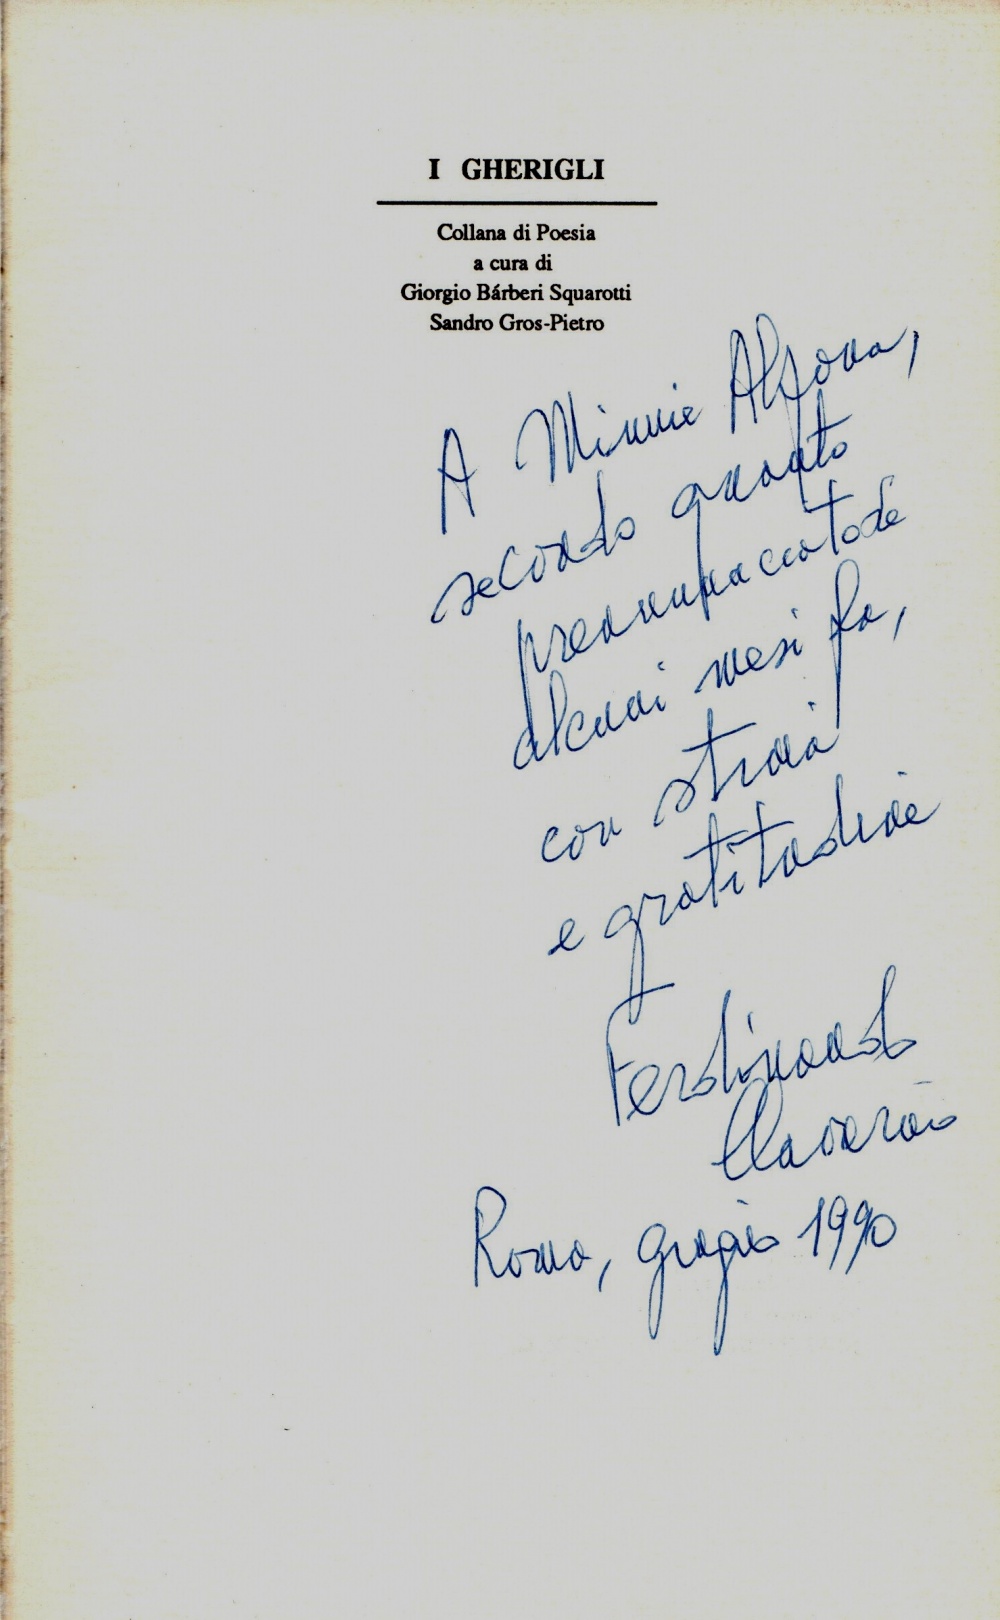 I GHERIGLI
Collana di Poesia
a cura di
Giorgio Bárberi Squarotti
Sandro Gros-Pietro
A Minnie Alzona,
secondo quanto
preannunciatole
alcuni mesi fa,
con stima
e gratitudine
Ferdinando
Roma, giugno 1990